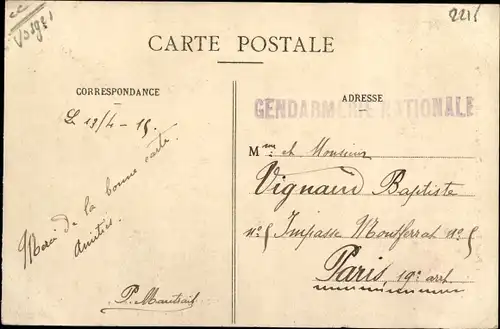 Vosges
221
CARTE POSTALE
CORRESPONDANCE
ADRESSE
GENDARMERIE NATIONALE
Le 13/4-15.
Merci de la bonne carte.
Amitiés.
Mme et Monsieur
Vignaud Baptiste
n°5 Impasse Montferrat n°5
Paris 19e arrt